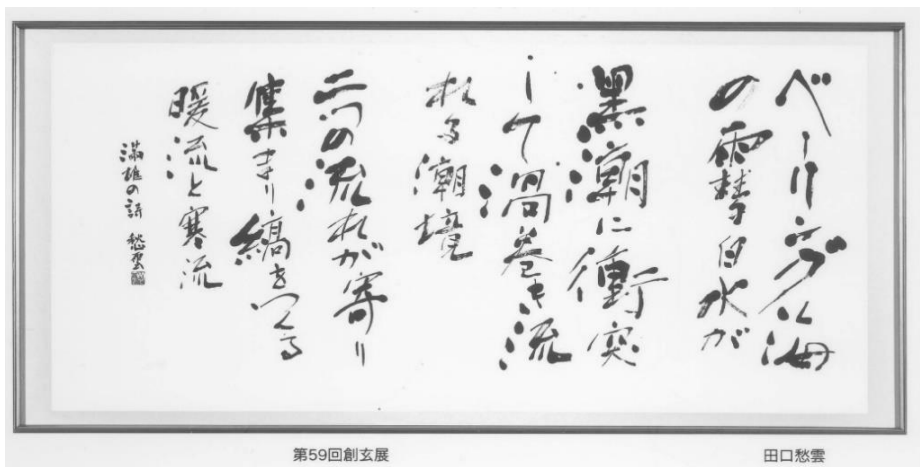 ベーリング海
の雪白水が
黑潮に衝突
して渦巻き流
れる潮境
二つの流れが寄り
集まり縞をつくる
暖流と寒流
満雄の詩 愁雲
第59回創玄展
田口愁雲